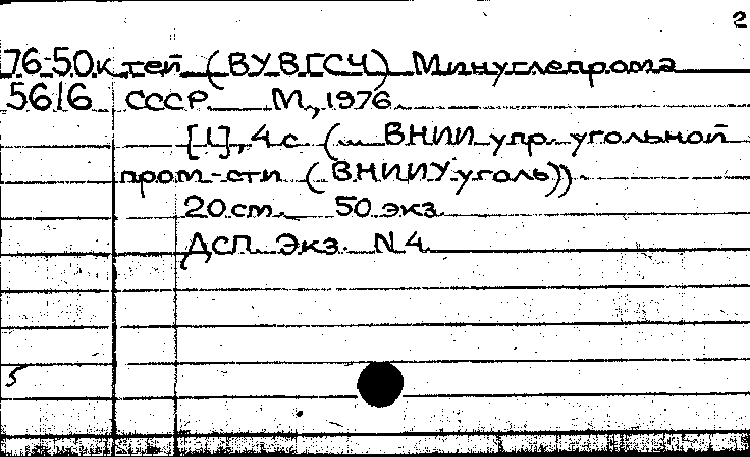 2
76-50к тей (ВУВГСЧ) Минуглепрома
5616 СССР. М., 1976.
[1], 4 с. (... ВНИИ упр. угольной
пром-сти (ВНИИУуголь)).
20 см. 50 экз.
ДСП. Экз. N 4.
5